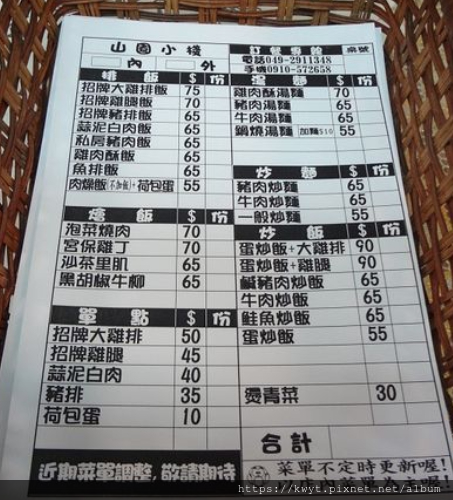 山園小棧
訂餐專線
桌號
內 外
電話049-2911348
手機0910-572658
排飯 $ 份
招牌大雞排飯 75
招牌雞腿飯 70
招牌豬排飯 65
蒜泥白肉飯 65
私房豬肉飯 65
雞肉酥飯 65
魚排飯 65
肉燥飯(不加飯)+荷包蛋 55
燴飯 $ 份
泡菜燒肉 70
宮保雞丁 70
沙茶里肌 65
黑胡椒牛柳 65
單點 $ 份
招牌大雞排 50
招牌雞腿 45
蒜泥白肉 40
豬排 35
荷包蛋 10
近期菜單調整,敬請期待
湯麵 $ 份
雞肉酥湯麵 70
豬肉湯麵 65
牛肉湯麵 65
鍋燒湯麵 加麵$10 55
炒麵 $ 份
豬肉炒麵 65
牛肉炒麵 65
一般炒麵 55
炒飯 $ 份
蛋炒飯+大雞排 90
蛋炒飯+雞腿 90
鹹豬肉炒飯 65
牛肉炒飯 65
鮭魚炒飯 65
蛋炒飯 55
燙青菜 30
合計
菜單不定時更新喔!
https://kwyt.pixnet.net/album